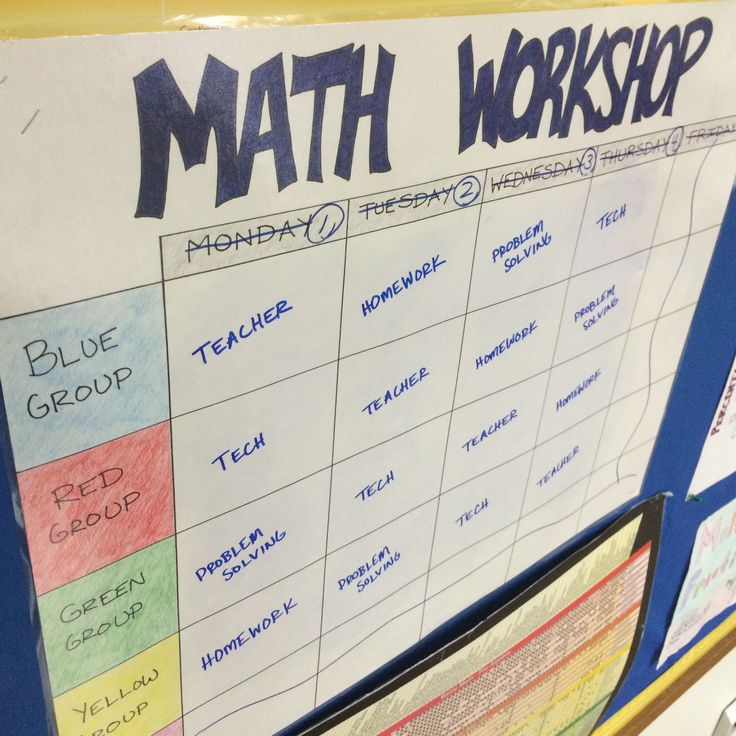 MATH WORKSHOP
MONDAY 1 TUESDAY 2 WEDNESDAY 3 THURSDAY 4 FRIDAY
BLUE
GROUP
TEACHER
HOMEWORK
PROBLEM
SOLVING
TECH
RED
GROUP
TECH
TEACHER
HOMEWORK
PROBLEM
SOLVING
GREEN
GROUP
PROBLEM
SOLVING
TECH
TEACHER
HOMEWORK
YELLOW
GROUP
HOMEWORK
PROBLEM
SOLVING
TECH
TEACHER